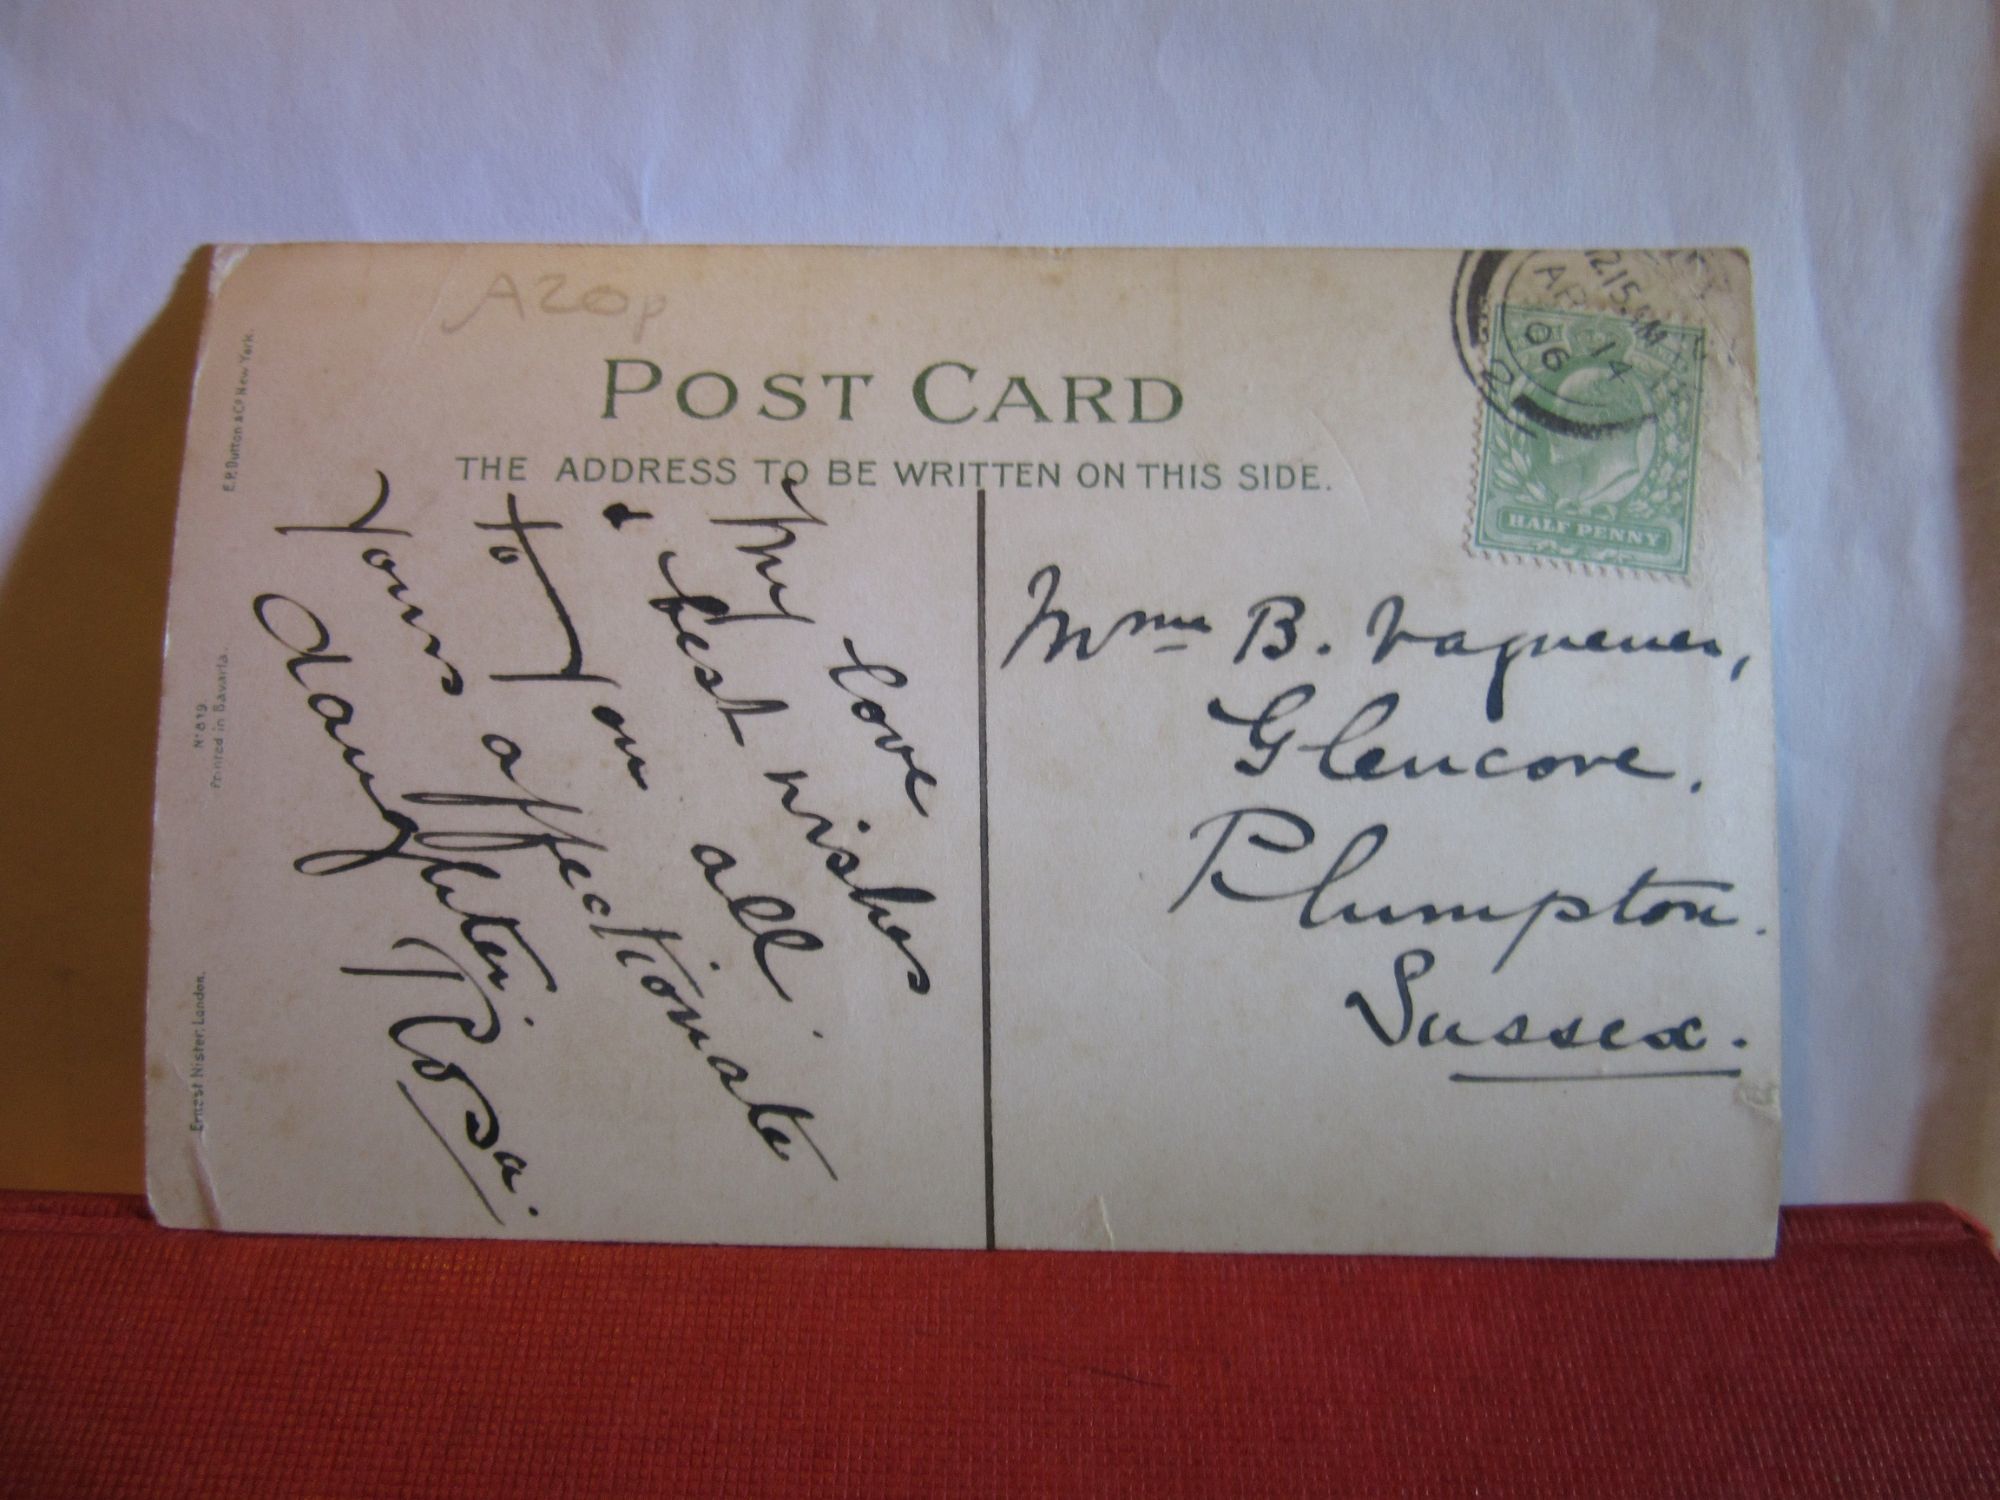 A20p
POST CARD
THE ADDRESS TO BE WRITTEN ON THIS SIDE.
12.15 AM
AP 14
06
HALF PENNY
My love
& best wishes
to you all
Yours affectionate
daughter
Rosa.
Mme B. Vaguener,
Glencove.
Plumpton.
Sussex.
E.P. Dutton & Co. New York.
No 819.
Printed in Bavaria.
Ernest Nister, London.